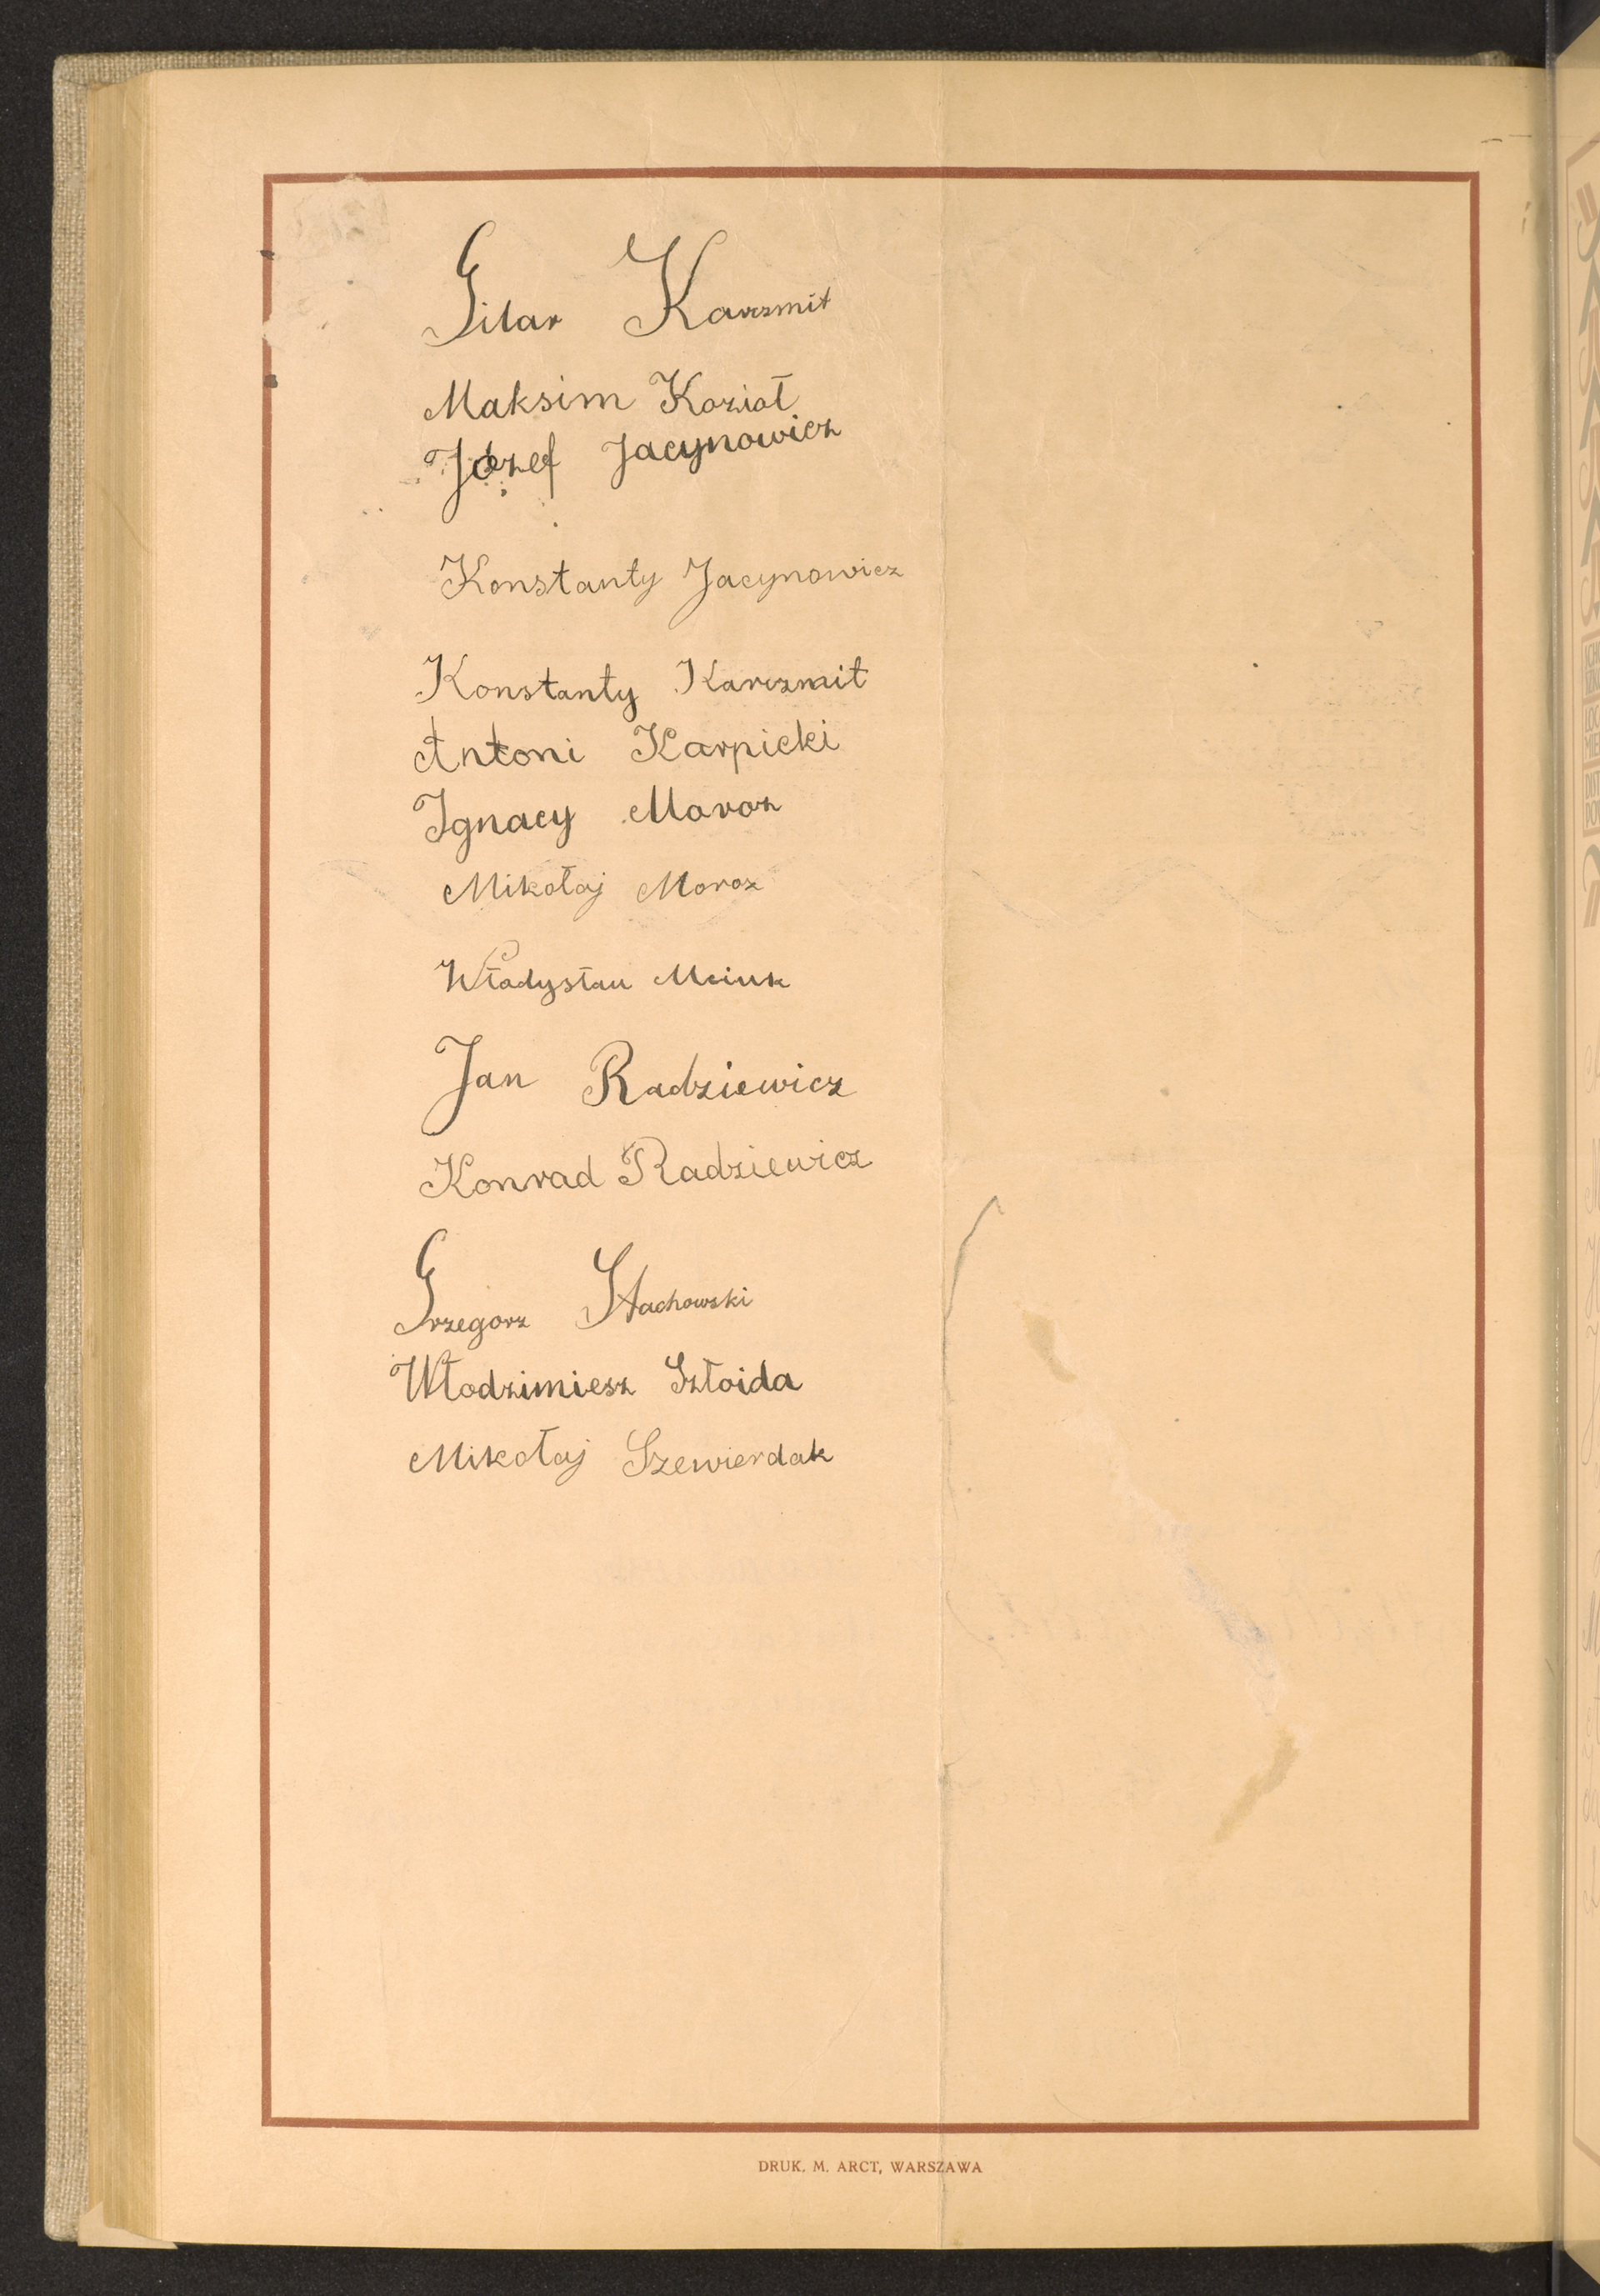 Gilar Karczmit
Maksim Kozioł
Józef Jacynowicz
Konstanty Jacynowicz
Konstanty Karczmit
Antoni Karpicki
Ignacy Moroz
Mikołaj Moroz
Władysław
Jan Radziewicz
Konrad Radziewicz
Grzegorz Stachowski
Włodzimiesz Sztoida
Mikołaj Szewierdak
DRUK. M. ARCT, WARSZAWA